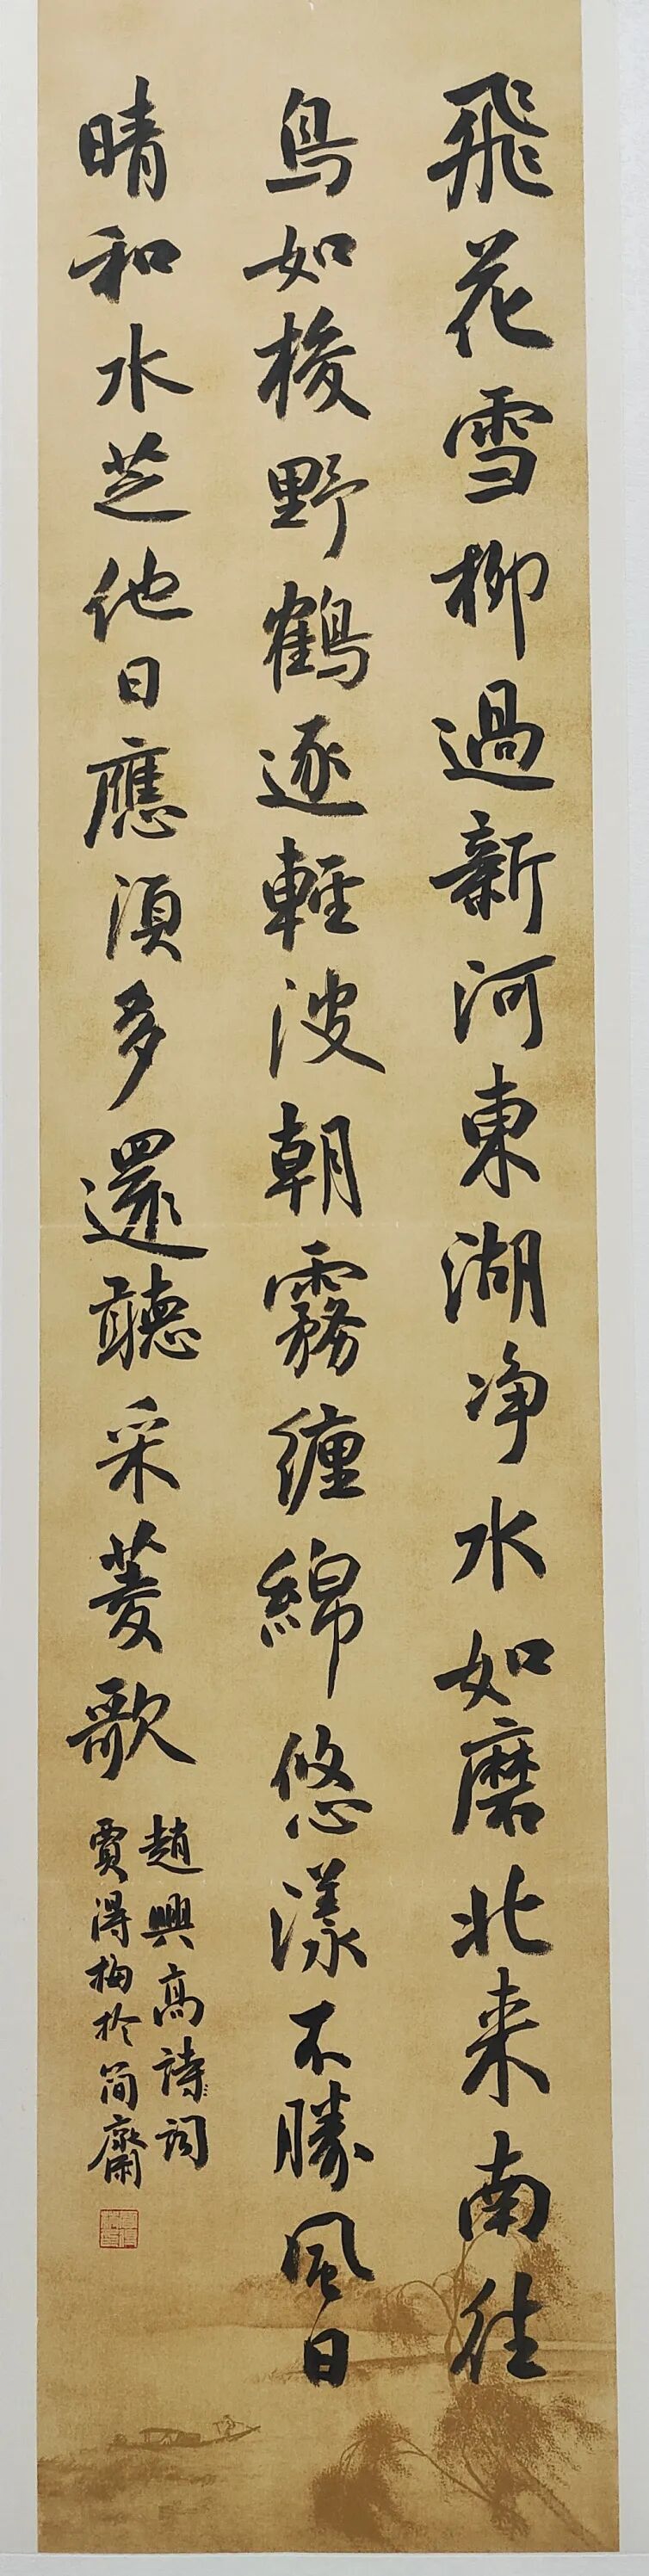 飛花雪柳過新河東湖净水如磨北来南往
鳥如梭野鶴逐輕波朝霧纏綿悠漾不勝風日
晴和水芝他日應須多還聽采菱歌
趙興高詩詞
賈得梅於簡齋